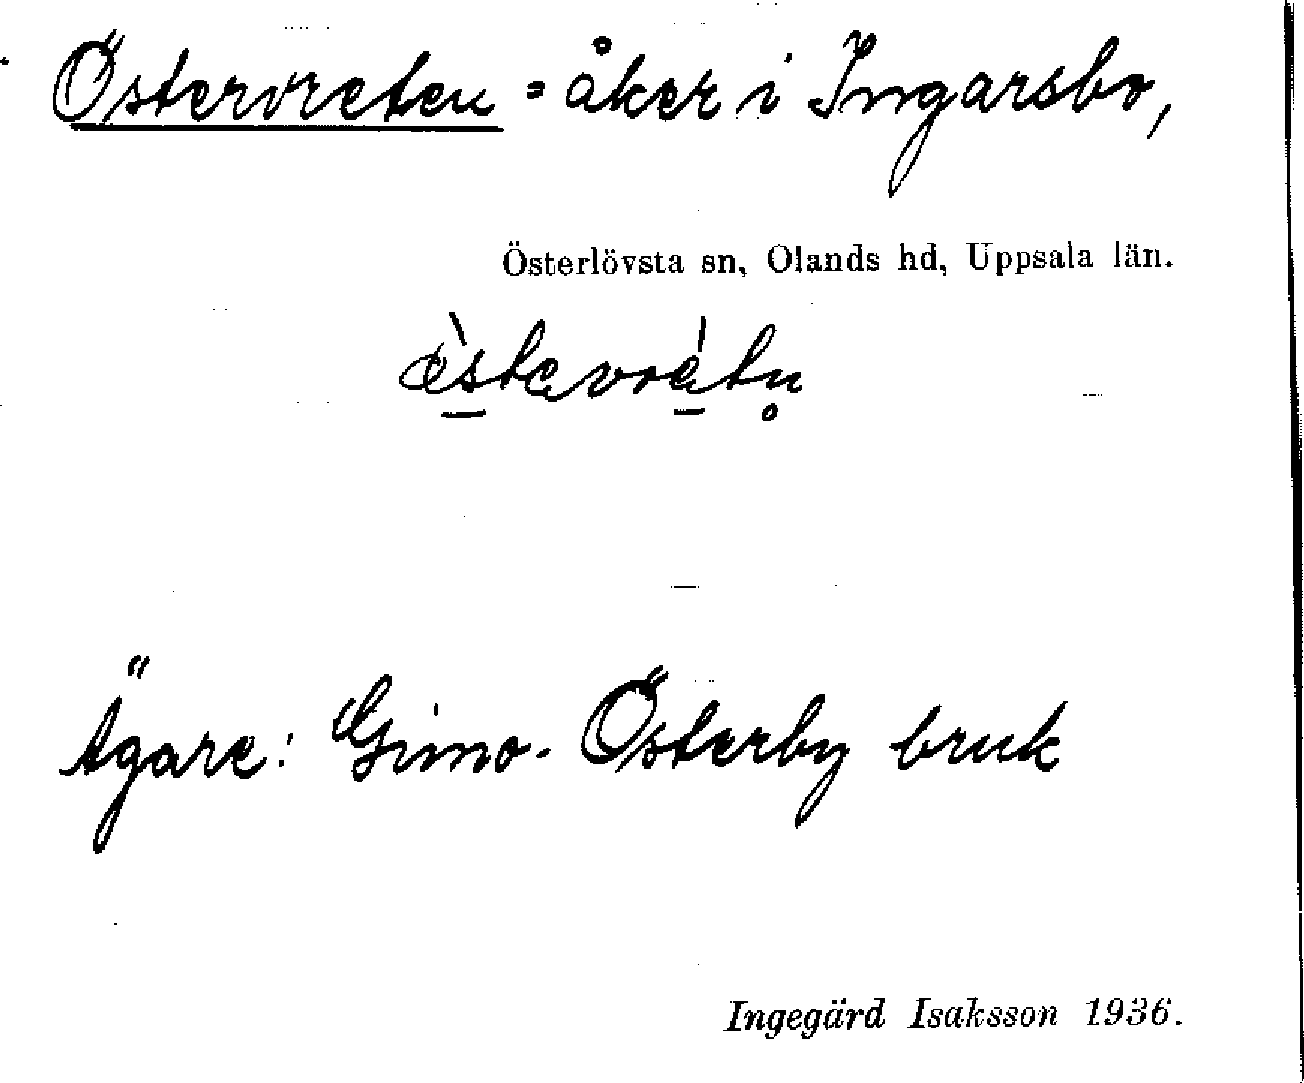 Östervreten = åker i Ingarsbo,
Österlövsta sn, Olands hd, Uppsala län.
Ägare: Gimo-Österby bruk
Ingegärd Isaksson 1936.